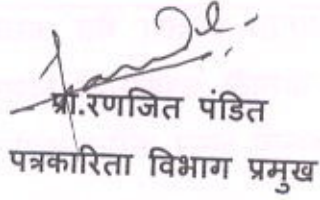 प्रा.रणजित पंडित
पत्रकारिता विभाग प्रमुख